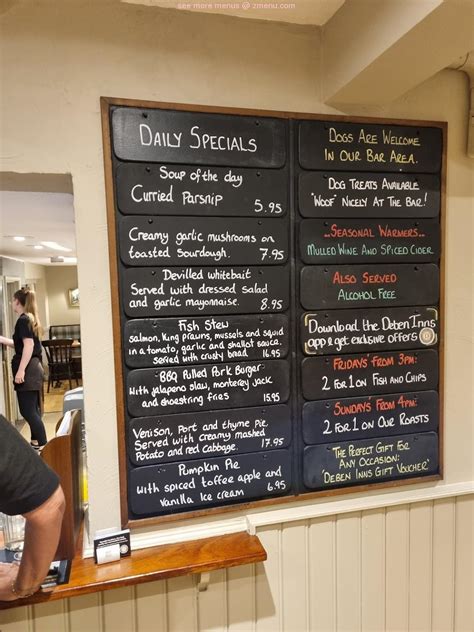 see more menus @ zmenu.com
DAILY SPECIALS
Soup of the day
Curried Parsnip 5.95
Creamy garlic mushrooms on
toasted Sourdough. 7.95
Devilled whitebait
Served with dressed salad
and garlic mayonnaise. 8.95
Fish Stew
Salmon, King prawns, mussels and squid
in a tomato, garlic and shallot sauce.
Served with crusty bread 16.95
BBQ Pulled Pork Burger
With jalapeno slaw, monterey jack
and shoestring fries 15.95
Venison, Port and thyme Pie.
Served with creamy mashed
Potato and red cabbage. 17.95
Pumpkin Pie
with spiced toffee apple and
Vanilla Ice cream 6.95
DOGS ARE WELCOME
IN OUR BAR AREA.
DOG TREATS AVAILABLE
'WOOF' NICELY AT THE BAR!
...SEASONAL WARMERS...
MULLED WINE AND SPICED CIDER
ALSO SERVED
ALCOHOL FREE
Download the Deben Inns
app & get exclusive offers
FRIDAYS FROM 3PM:
2 FOR 1 ON FISH AND CHIPS
SUNDAYS FROM 4PM:
2 FOR 1 ON OUR ROASTS
THE PERFECT GIFT FOR
ANY OCCASION:
'DEBEN INNS GIFT VOUCHER'